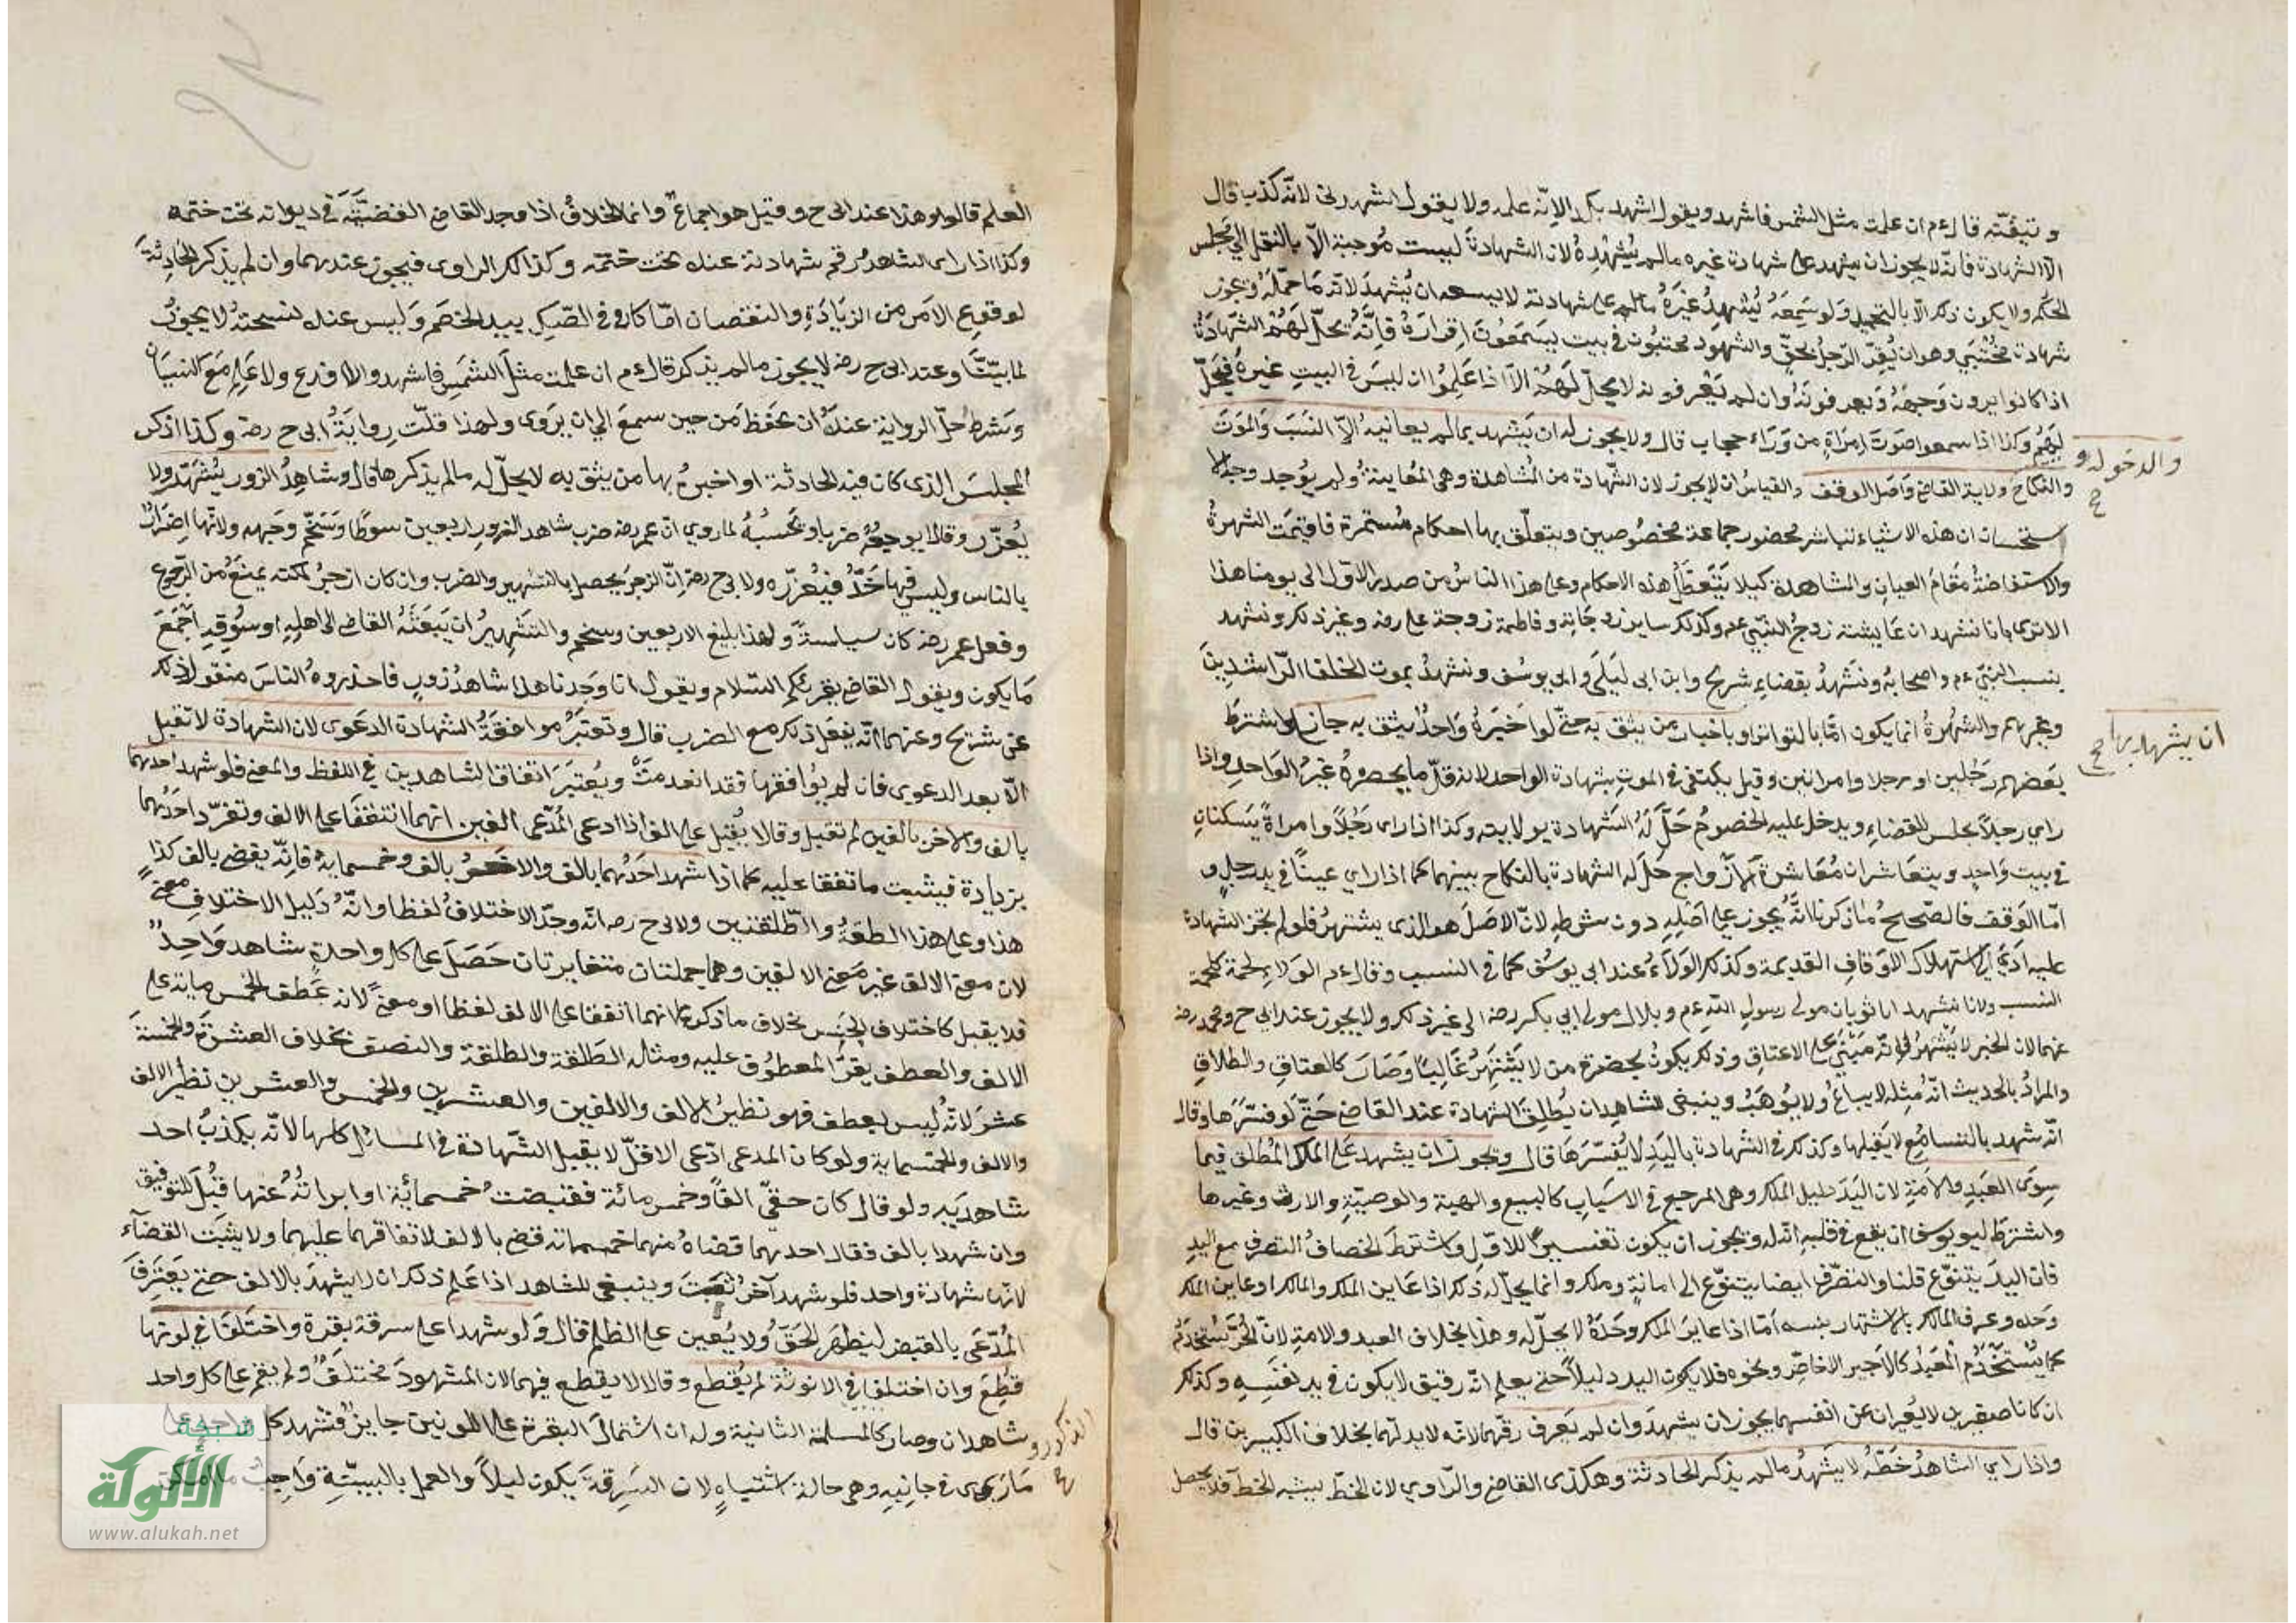 و تيقنه قال ءم ان علمت مثل الشمس فاشهد ويقول اشهد بكذا لانه علمه ولا يقول اشهدني لانه كذب قال
الا الشهادة فانه لا يجوز ان يشهد على شهادة غيره مالم يُشهِدهُ لان الشهادة ليست مُوجبة الا بالنقل الى مجلس
الحكم ولا يكون ذلك الا بالتحميل ولو سَمِعَهُ يُشهِدُ غيرَهُ على شهادته لا يسعه ان يُشهدَ لانه مَا حمّلَهُ وتجوز
شهادة مختبي وهو ان يُقِرّ الرّجل بحقٍّ والشهود مختبئون في بيت يسمَعُونَ إقرارَهُ فإنّه تحلّ لهم الشهادَة
اذا كانوا يرون وَجهَهُ ويعرفونَهُ وان لم يَعرفونه لا يحلّ لهم الا اذا عَلِمُوا ان ليسَ في البيت غيره فيحلّ
لهم وكذا اذا سمعوا صَوت امرَاةٍ من وَرَاء حجاب قال ولا يجوز له ان يَشهد بمالم يعاينه الا النسَبَ والموتَ
والدخول و
والنكاح وولاية القاضي واصل الوقف والقياسُ ان لا يجوز لان الشهادة من المُشاهدة وهي المُعاينةُ ولم يوُجد وجهُ الا
ستحسان ان هذه الاشياء تباشر بحضور جماعة مخصُوصين ويتعلّق بها احكام مُستمرة فاقيمَت الشهرةُ
والاستفاضةُ مُقامَ العيانِ والمشاهدة كيلا يتَعَطّلُ هذه الاحكام وعلى هذا الناسُ من صدر الاوّل الى يومنا هذا
الا ترى بانا نشهد ان عايشة زوجُ النبيّ عم وكذلك ساير زوجاته وفاطمة زوجة علي رضه وغير ذلك ونشهد
بنسب النبيّ ءم واصحابه ونَشهدُ بقضاءِ شريح وابن ابي ليلَى وابي يوسُف ونشهدُ بموت الخلفا الرّاشدينَ
وغيرهم والشهُرةُ انما يكون امّا بالتواتر او باخبار من يثق به حتّى لو اخبَرهُ وَاحدُ يثق به جاز واشترط
ان يشهد بها صح
بعَضهم رَجُلين او رجلا وامراتين وقيل يكتفى في الموت بشهادة الواحد لانه قلّ ما يحضرهُ غيرُ الواحِد واذا
راى رجلا بمجلس للقضاءِ ويدخل عليه الخصومُ حَلّ لهُ الشهادة بولايته وكذا اذا راى رَجُلاً وامراةً يَسكنانِ
في بيت وَاحدٍ ويتعَاشران مُعَاشرة الازواج حَلّ له الشهادة بالنكاح بينهما كما اذا راي عيناً في يد رجل و
امّا الوقف فالصّحيحُ ماذكرنا انّه يجوز على اصَلِهِ دون شرطهِ لانّ الاصَلَ هو الذي يشتهرُ فلو لم تجز الشهادة
عليه ادّى الى استهلاك الاوَقافِ القديمة وكذلك الوَلآءُ عند ابي يوسُف كما في النسب وقال ءم الولاءِ لحمة كلحمة
النسب ولانا نشهد انا ثوبان مولى رسولِ الله ءم وبلال مولى ابي بكر رضه الى غير ذلك ولا يجوز عند ابي ح ومحمد رضه
عنهما لان الخبر لا يَشتهرُ فانّه مَبْنيّ على الاعتاقِ وذلك يكونُ بحضرة من لا يَشتهرُ غَالِبًا وَصَارَ كالعتاقِ والطلاقِ
والمرادُ بالحديث انّه مُثله لا يباعُ ولا يُوهَبُ وينبغى للشاهدِ ان يُطلِقَ الشهادة عند القاضي حَتّى لو فسّرَها وقال
انّه شهد بالتسامُع لا يَقبلها وكذلك في الشهادة باليَدِ لا يُفسّرَهَا قال وتجوز ان يشهد عَلى الملك المُطلق فيما
سِوَى العَبدِ والامَةِ لان اليَدَ دليل الملك وهى المرجع في الاسَبابِ كالبيع والهبة والوصيّةِ والارث وغيرها
واشترط ابو يوسف ان يقع في قلبهِ انّه له ويجوز ان يكون تفسيراً للاوّلِ واشترط الخصافُ التصرف مع اليدِ
فان اليدَ يتنوّع قلنا والتصرّف ايضا يتنوّع الى امانةٍ وملك وانما يحلّ له ذلك اذا عَاين الملك والمالك او عاين الملك
وَحده وعرف المالك بالاشتهار بنسبه امّا اذا عايَن الملك وحَدَهُ لا يحلّ له وهذا بخلاف العبد والامةِ لانّ الحُرّ يُستخدَمُ
كما يُستخدَم العَبدُ كالاجير الاخاصّ ونحوه فلا يكون اليد دليلاً حتى يعلم انّه رقيق لا يكون في يد نفسِهِ وكذلك
ان كانا صغيرين لا يُعبران عن انفسهما يجوز ان يشهدَ وان لم يَعرف رقّهما لانه لا يد لهما بخلاف الكبيرين قال
واذا راي الشاهدُ خطّهُ لا يشهدُ مالم يذكر الحادثة وهكذى القاضي والرّاوي لان الخطّ يشبه الخط فلا يحصل
العلم قالوا وهذا عند ابى ح وقيل هو اجماعُ وانما الخلافُ اذا وجد القاضي القضيّةَ في ديوانه تحت ختمه
وكذا اذا راى الشاهدُ رقم شهادته عنده تحت ختمه وكذلك الراوى فيجوز عندهما وان لم يذكر الحَادِثةَ
لوقوعِ الامَر من الزيَادَةِ والنقصان امّا كان في الصّكِ بيد الخصَم وَليس عنده نسخته لا يجوزُ
لما بيّنّا وعند ابي ح رضه لا يجوز مالم يذكر قال ءم ان علمت مثلَ الشَمسِ فاشهد والا فدع ولا عَلِمَ مَع النسيَان
وشرط حلّ الرواية عندهُ ان يحَفظ مَن حين سمعَ الي ان يروى ولهذا قلّت رِوايَةُ ابى ح رضه وكذا اذكر
المجلسَ الذى كان فيه الحادثة او اخبرهُ بها من يثق به لا يحلّ له مالم يذكرها قال وشاهدُ الزور يُشهَرُ ولا
يُعزّر وقالا يوجعُهُ ضربا ويحَبسُهُ لما روي ان عمر رضه ضرب شاهد الزورِ اربعين سوطًا وسَخّم وجَهه ولانها اضرَارٌ
بالناس وليس فيها حَدُّ فيُعزّره ولابى ح رضه انّ الزجرَ يحصل بالتشهير والضرب وان كان ازجرُ لكنه يمنعُ من الرّجوع
وفعل عمر رضه كان سياسةً ولهذا بليغ الاربعين وسخم والتَشهيرُ ان يَبعَثَهُ القاضي الى اهلِهِ او سُوقِهِ اجَمَعَ
مَا يكون ويقول القاضى يقرئكم السّلام ويقول انّا وجَدنا هذا شاهدُ زورٍ فاحذروهُ الناسَ منقول ذلك
عن شريح وعنهما انّه يفعَل ذلك مع الضرب قال وتعتبرُ موافقةُ الشهادة الدعَوى لان الشهادة لا تقبل
الّا بعد الدعوى فان لم يوُافقها فقد انعدمتْ ويُعتبَرَ اتفاق الشاهدين في اللفظ والمعنى فلو شهد احدهما
بالف والاخر بالفين لم تقبل وقالا يُقبل على الف اذا ادعى المُدّعى الفين انهما اتفقفَا على الالف وتفرّد احَدُهما
بزيادة فيثبت ما اتفقا عليه كما اذا شهد احدُهما بالف والاخر بالف وخمسمايةٍ فانّه يقضى بالف كذا
هذا وعلى هذا الطلقةُ والطّلقتين ولابى ح رضه انّه وجدَ الاختلافُ لفظا وانّهُ دَليل الاختلافِ معنىً
لان معنى الالف غير مَعنى الالفين وهما جملتان متغايرتان حَصَلَ على كل واحدة شاهد وَاحِدٌ
فلا يقبل كاختلاف الجنس بخلاف ما ذكره لانهما اتفقفا على الالف لفظا او معنىً لانه عُطف الخمس ماية على
الالف والعطف يقرّ المعطوُف عليه ومثاله الطَلقة والطلقة والنصف بخلاف العشرَةَ والخمسَةَ
عشرَ لانه ليس بعطف فهو نظيرُ الالف والالفين والعشرين والخمس والعشرين نظيُر الالف
والالف والخمسماية ولو كان المدعى ادّعى الاقلّ لا يقبل الشّهادة في المسائل كلها لانّه يكذبُ احد
شاهدَيه ولو قال كان حقيّ الفاً وخمس مائة فقبضت خمسمائة او ابراته عُنها قبُلَ للتوفيق
وان شهدا بالف فقال احدهما قضاهُ منهما خمسماية قضى بالالف لاتفاقهما عليهما ولا يثبَت القضآء
لانّه شهادة واحد فلو شهد آخرُ ثبتَ وينبغي للشاهد اذا عَلم ذلك ان لا يشهدَ بالالف حتى يَعتِرفَ
المُدّعَى بالقبض ليظهَر الحَقّ ولا يُعين على الظلم قال ولو شهدا على سرقة بقرة واختَلفَا في لونها
قُطِعَ وان اختلفا في الانوثة لم يُقطع وقالا لا يقطع فيهما لان المشهودَ مختلفٌ ولم يقم على كل واحد
شاهدان وصار كالمسلمة الثانية وله ان اشتمال البقرة على اللونين جايزٌ فشهد كل واحد على
الذكورو صح
ما رَءى في جانِبِه وهى حالة اشتباهٍ لان السَرقةَ يكون ليلاً والعمل بالبيّنةِ وَاجِبُ ما امكن
شبكة
الألوكة
www.alukah.net